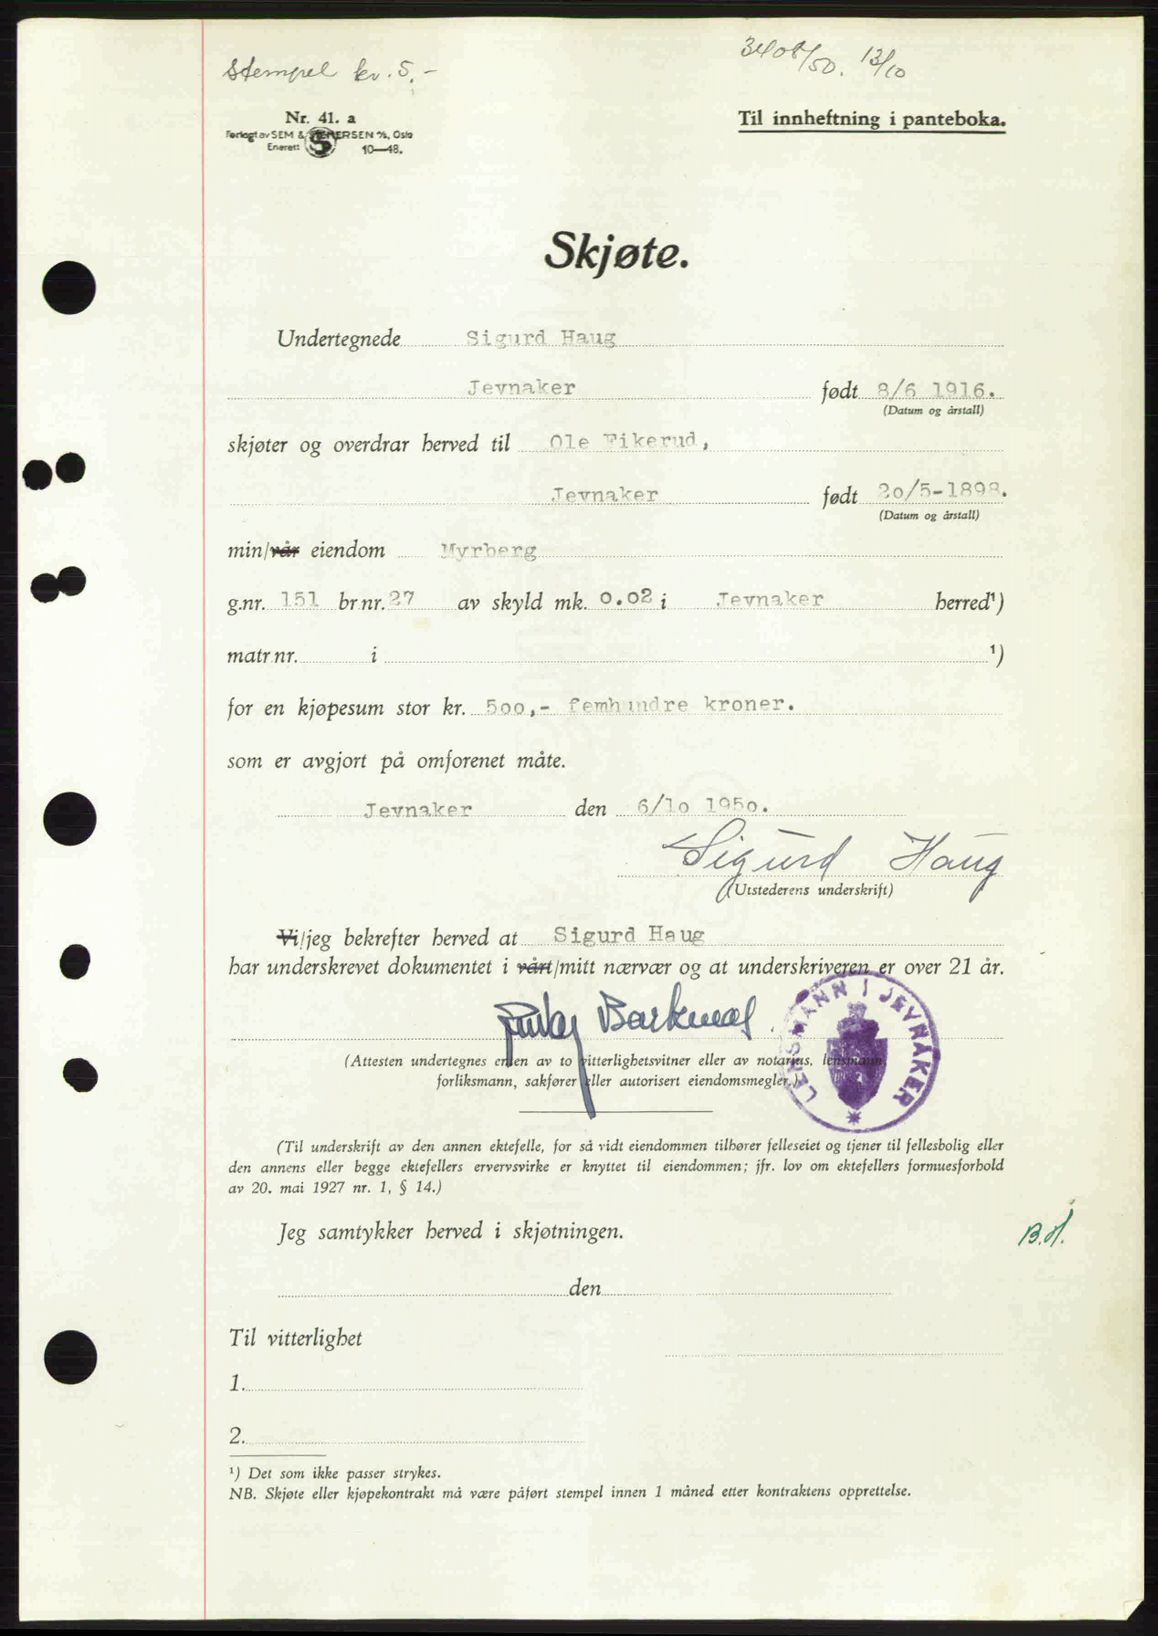 stempel kr. 5,-
3408/50. 13/10
Nr. 41. a
Forlagt av SEM & STENERSEN A/S, Oslo
Enerett 10—48.
Til innheftning i panteboka.
Skjøte.
Undertegnede Sigurd Haug
Jevnaker født 8/6 1916.
(Datum og årstall)
skjøter og overdrar herved til Ole Fikerud,
Jevnaker født 20/5-1898.
(Datum og årstall)
min/vår eiendom Myrberg
g.nr. 151 br.nr. 27 av skyld mk. 0.02 i Jevnaker herred¹)
matr.nr. i ¹)
for en kjøpesum stor kr. 500,- femhundre kroner.
som er avgjort på omforenet måte.
Jevnaker den 6/10 1950.
Sigurd Haug
(Utstederens underskrift)
Vi/jeg bekrefter herved at Sigurd Haug
har underskrevet dokumentet i vårt/mitt nærvær og at underskriveren er over 21 år.
LENSMANN I JEVNAKER
(Attesten undertegnes enten av to vitterlighetsvitner eller av notarius, lensmann,
forliksmann, sakfører eller autorisert eiendomsmegler.)
(Til underskrift av den annen ektefelle, for så vidt eiendommen tilhører felleseiet og tjener til fellesbolig eller
den annens eller begge ektefellers ervervsvirke er knyttet til eiendommen; jfr. lov om ektefellers formuesforhold
av 20. mai 1927 nr. 1, § 14.)
Jeg samtykker herved i skjøtningen.
B.H.
den
Til vitterlighet
1.
2.
¹) Det som ikke passer strykes.
NB. Skjøte eller kjøpekontrakt må være påført stempel innen 1 måned etter kontraktens opprettelse.